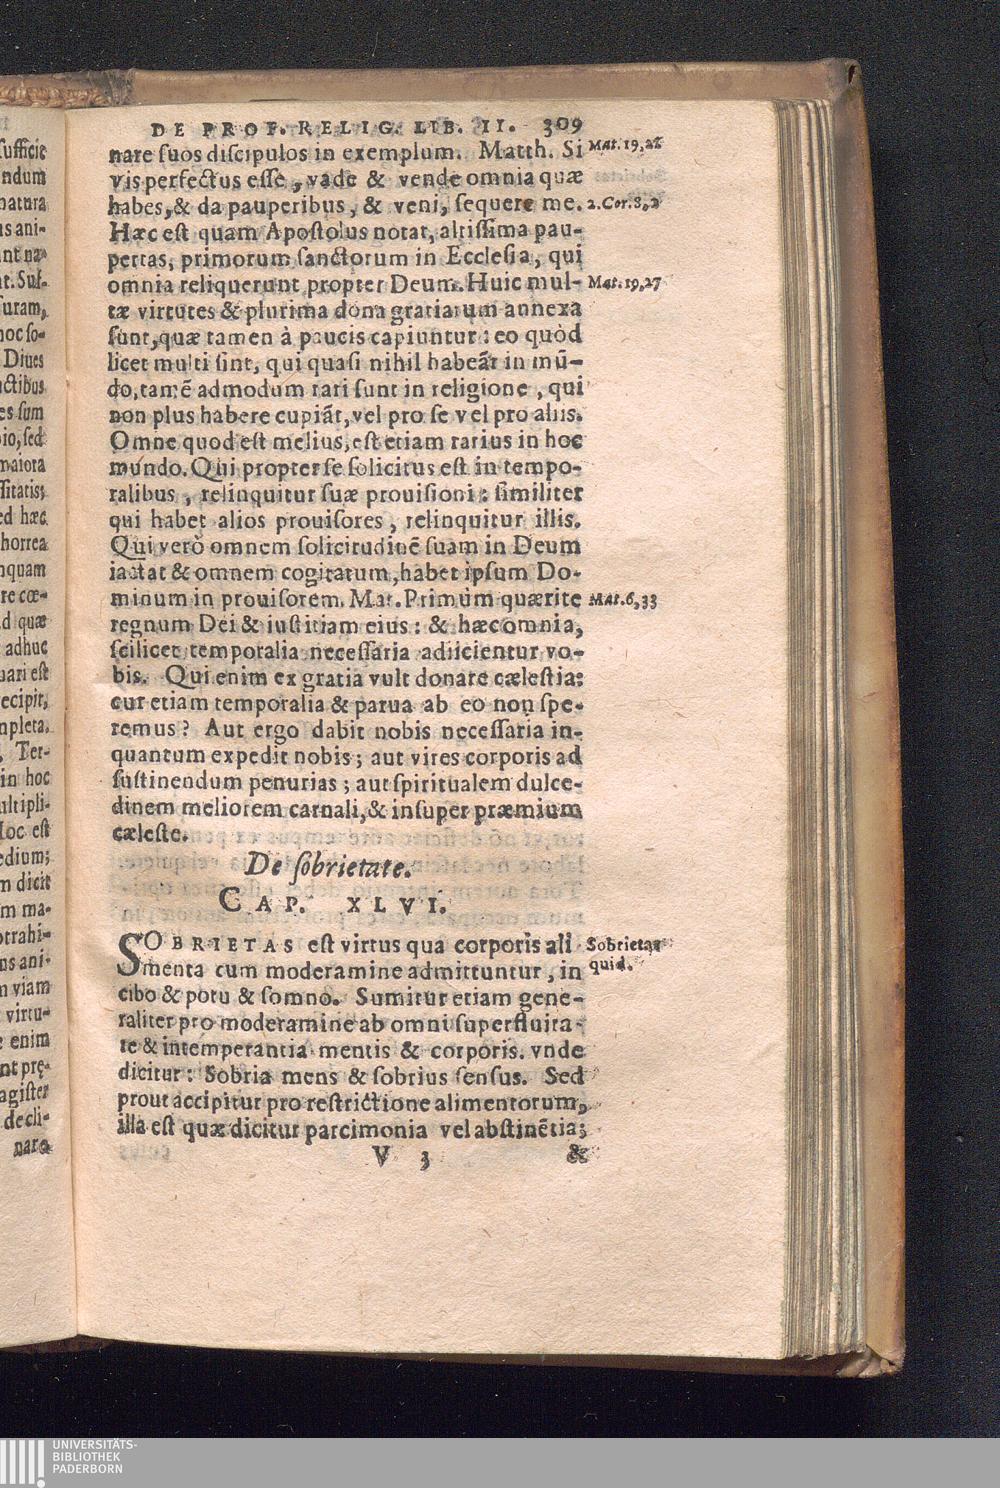 DE PROF. RELIG. LIB. II. 309
nare suos discipulos in exemplum. Matth. Si
vis perfectus esse, vade & vende omnia quæ
habes, & da pauperibus, & veni, sequere me.
Hæc est quam Apostolus notat, altissima pau-
pertas, primorum sanctorum in Ecclesia, qui
omnia reliquerunt propter Deum. Huic mul-
tæ virtutes & plurima dona gratiarum annexa
sunt, quæ tamen à paucis capiuntur: eo quòd
licet multi sint, qui quasi nihil habeãt in mũ-
do, tamẽ admodum rari sunt in religione, qui
non plus habere cupiãt, vel pro se vel pro aliis.
Omne quod est melius, est etiam rarius in hoc
mundo. Qui propter se solicitus est in tempo-
ralibus, relinquitur suæ prouisioni: similiter
qui habet alios prouisores, relinquitur illis.
Qui verò omnem solicitudinẽ suam in Deum
iactat & omnem cogitatum, habet ipsum Do-
minum in prouisorem. Mat. Primùm quærite
regnum Dei & iustitiam eius: & hæc omnia,
scilicet temporalia necessaria adiicientur vo-
bis. Qui enim ex gratia vult donare cælestia:
cur etiam temporalia & parua ab eo non spe-
remus? Aut ergo dabit nobis necessaria in-
quantum expedit nobis; aut vires corporis ad
sustinendum penurias; aut spiritualem dulce-
dinem meliorem carnali, & insuper præmium
cæleste.
De sobrietate.
CAP. XLVI.
SOBRIETAS est virtus qua corporis ali
menta cum moderamine admittuntur, in
cibo & potu & somno. Sumitur etiam gene-
raliter pro moderamine ab omni superfluita-
te & intemperantia mentis & corporis. vnde
dicitur: Sobria mens & sobrius sensus. Sed
prout accipitur pro restrictione alimentorum,
illa est quæ dicitur parcimonia vel abstinẽtia;
V 3 &
Mat. 19, 21
2. Cor. 8, 2
Mat. 19, 27
Mat. 6, 33
Sobrietas
quid.
sufficie
ndum
natura
us ani-
nt na-
t. Suf-
uram,
hoc so-
Diues
ctibus
es sum
io, sed
maiora
ssitatis;
ed hæc
horrea
nquam
re cœ-
d quæ
adhuc
uari est
ecipit,
mpleta.
Ter-
in hoc
ultipli-
Hoc est
edium;
m dicit
m ma-
otrahi-
ns ani-
m viam
virtu-
e enim
nt prę-
agister
decli-
nare
UNIVERSITÄTS-
BIBLIOTHEK
PADERBORN